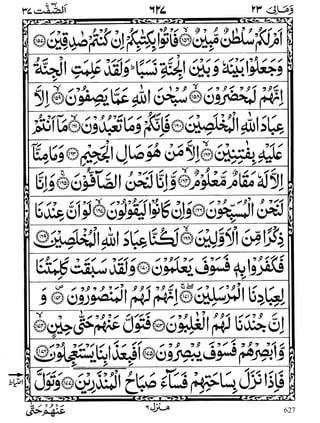 وَمَالِيَ ٢٣ ٦٢٧ الصّٰٓفّٰت ٣٧
اَمْ لَكُمْ سُلْطٰنٌ مُّبِيْنٌ ﴿١٥٦﴾ فَاْتُوْا بِكِتٰبِكُمْ اِنْ كُنْتُمْ صٰدِقِيْنَ ﴿١٥٧﴾
وَجَعَلُوْا بَيْنَهٗ وَبَيْنَ الْجِنَّةِ نَسَبًا ؕ وَلَقَدْ عَلِمَتِ الْجِنَّةُ
اِنَّهُمْ لَمُحْضَرُوْنَ ﴿١٥٨﴾ سُبْحٰنَ اللّٰهِ عَمَّا يَصِفُوْنَ ﴿١٥٩﴾ اِلَّا
عِبَادَ اللّٰهِ الْمُخْلَصِيْنَ ﴿١٦٠﴾ فَاِنَّكُمْ وَمَا تَعْبُدُوْنَ ﴿١٦١﴾ مَاۤ اَنْتُمْ
عَلَيْهِ بِفٰتِنِيْنَ ﴿١٦٢﴾ اِلَّا مَنْ هُوَ صَالِ الْجَحِيْمِ ﴿١٦٣﴾ وَمَا مِنَّاۤ
اِلَّا لَهٗ مَقَامٌ مَّعْلُوْمٌ ﴿١٦٤﴾ وَّاِنَّا لَنَحْنُ الصَّآفُّوْنَ ﴿١٦٥﴾ وَاِنَّا
لَنَحْنُ الْمُسَبِّحُوْنَ ﴿١٦٦﴾ وَاِنْ كَانُوْا لَيَقُوْلُوْنَ ﴿١٦٧﴾ لَوْ اَنَّ عِنْدَنَا
ذِكْرًا مِّنَ الْاَوَّلِيْنَ ﴿١٦٨﴾ لَكُنَّا عِبَادَ اللّٰهِ الْمُخْلَصِيْنَ ﴿١٦٩﴾
فَكَفَرُوْا بِهٖ فَسَوْفَ يَعْلَمُوْنَ ﴿١٧٠﴾ وَلَقَدْ سَبَقَتْ كَلِمَتُنَا
لِعِبَادِنَا الْمُرْسَلِيْنَ ﴿١٧١﴾ اِنَّهُمْ لَهُمُ الْمَنْصُوْرُوْنَ ﴿١٧٢﴾ وَ
اِنَّ جُنْدَنَا لَهُمُ الْغٰلِبُوْنَ ﴿١٧٣﴾ فَتَوَلَّ عَنْهُمْ حَتّٰى حِيْنٍ ﴿١٧٤﴾
وَّاَبْصِرْهُمْ فَسَوْفَ يُبْصِرُوْنَ ﴿١٧٥﴾ اَفَبِعَذَابِنَا يَسْتَعْجِلُوْنَ ﴿١٧٦﴾
فَاِذَا نَزَلَ بِسَاحَتِهِمْ فَسَآءَ صَبَاحُ الْمُنْذَرِيْنَ ﴿١٧٧﴾ وَتَوَلَّ
عَنْهُمْ حَتّٰى منزل ٦ 627